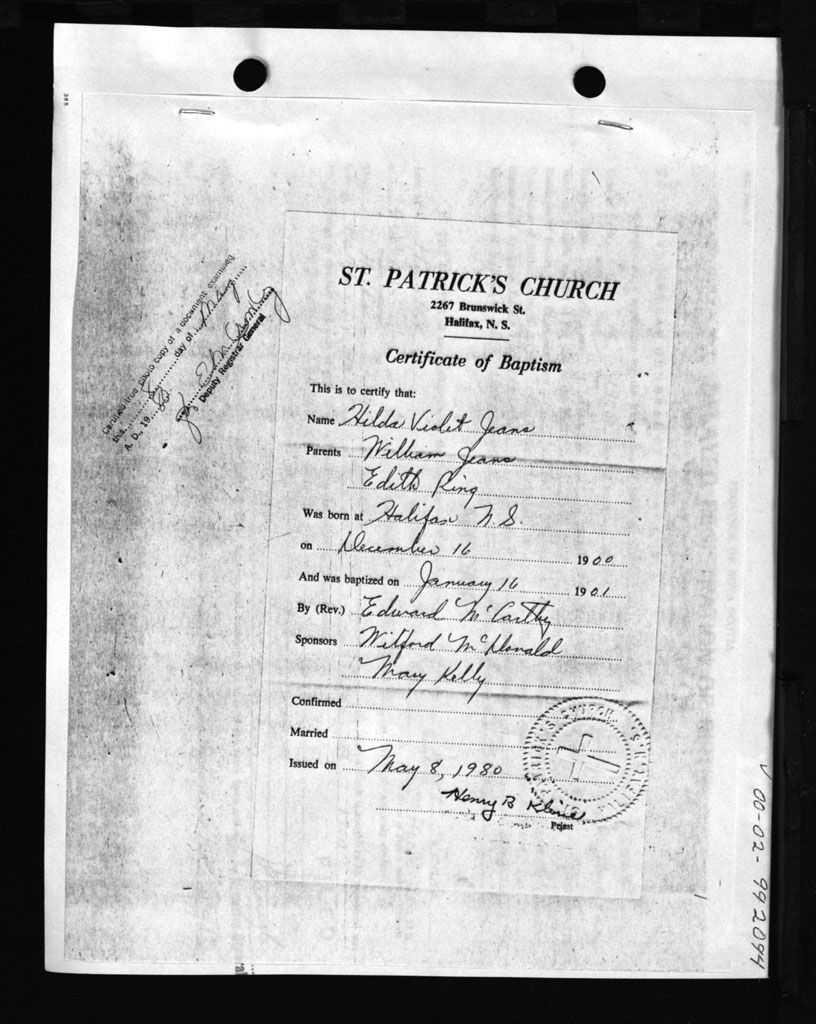 ST. PATRICK'S CHURCH
2267 Brunswick St.
Halifax, N. S.
Certificate of Baptism
This is to certify that:
Name Hilda Violet Jeans
Parents William Jeans
Edith King
Was born at Halifax N.S.
on December 16 1900
And was baptized on January 16 1901
By (Rev.) Edward McCarthy
Sponsors Wilford McDonald
Mary Kelly
Confirmed
Married
Issued on May 8, 1980
Henry B Kline
Priest
Certified true photo copy of a document examined
this day of
A. D., 19 80
Deputy Registrar General
V 00-02-992094